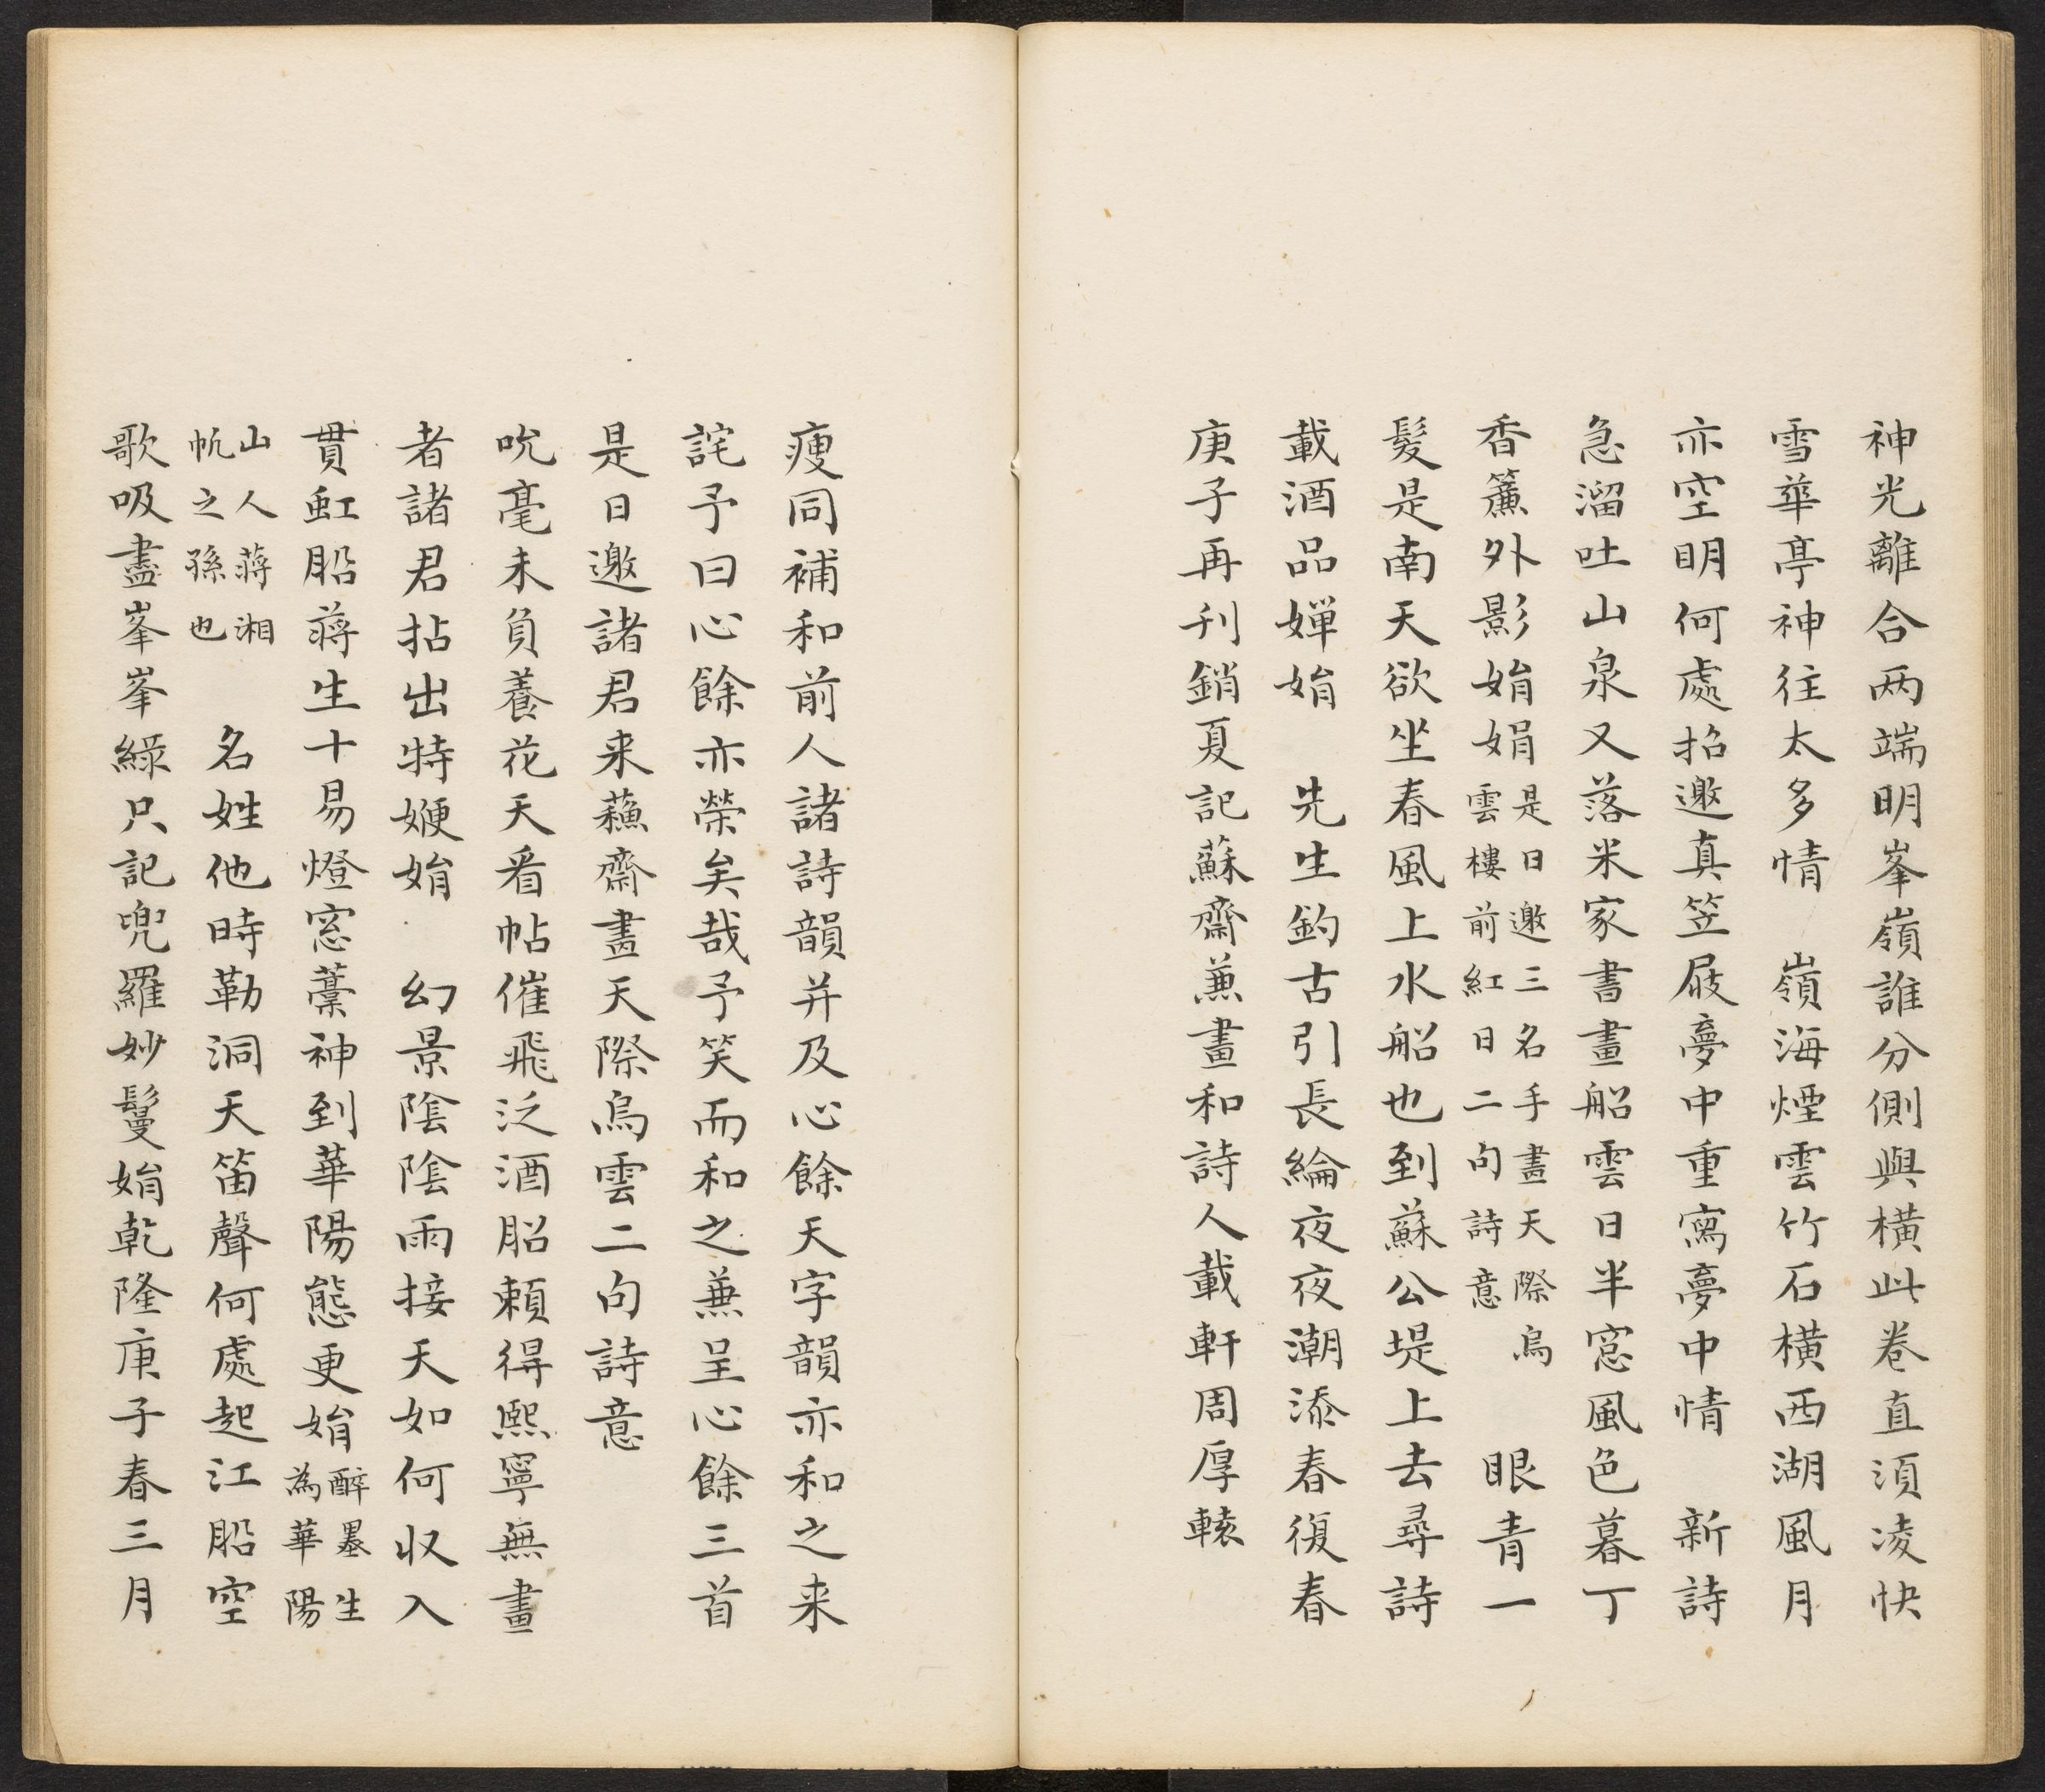 神光離合两端明峯嶺誰分側與橫此卷直須凌快
雪華亭神往太多情　嶺海煙雲竹石橫西湖風月
亦空明何處招邀真笠屐夢中重寫夢中情　新詩
急溜吐山泉又落米家書畫船雲日半窓風色暮丁
香簾外影娟娟是日邀三名手畫天際烏
雲樓前紅日二句詩意　眼青一
髮是南天欲坐春風上水船也到蘇公堤上去尋詩
載酒品嬋娟　先生釣古引長綸夜夜潮添春復春
庚子再刊銷夏記蘇齋兼畫和詩人載軒周厚轅
瘦同補和前人諸詩韻并及心餘天字韻亦和之来
詫予曰心餘亦榮矣哉予笑而和之兼呈心餘三首
是日邀諸君来蘓齋畫天際烏雲二句詩意
吮毫未負養花天看帖催飛泛酒船賴得熙寧無畫
者諸君拈出特㛹娟　幻景陰陰雨接天如何収入
貫虹船蔣生十易燈窓藁神到華陽態更娟醉墨生
為華陽
山人蔣湘
帆之孫也　名姓他時勒洞天笛聲何處起江船空
歌吸盡峯峯綠只記兜羅妙鬘娟乾隆庚子春三月